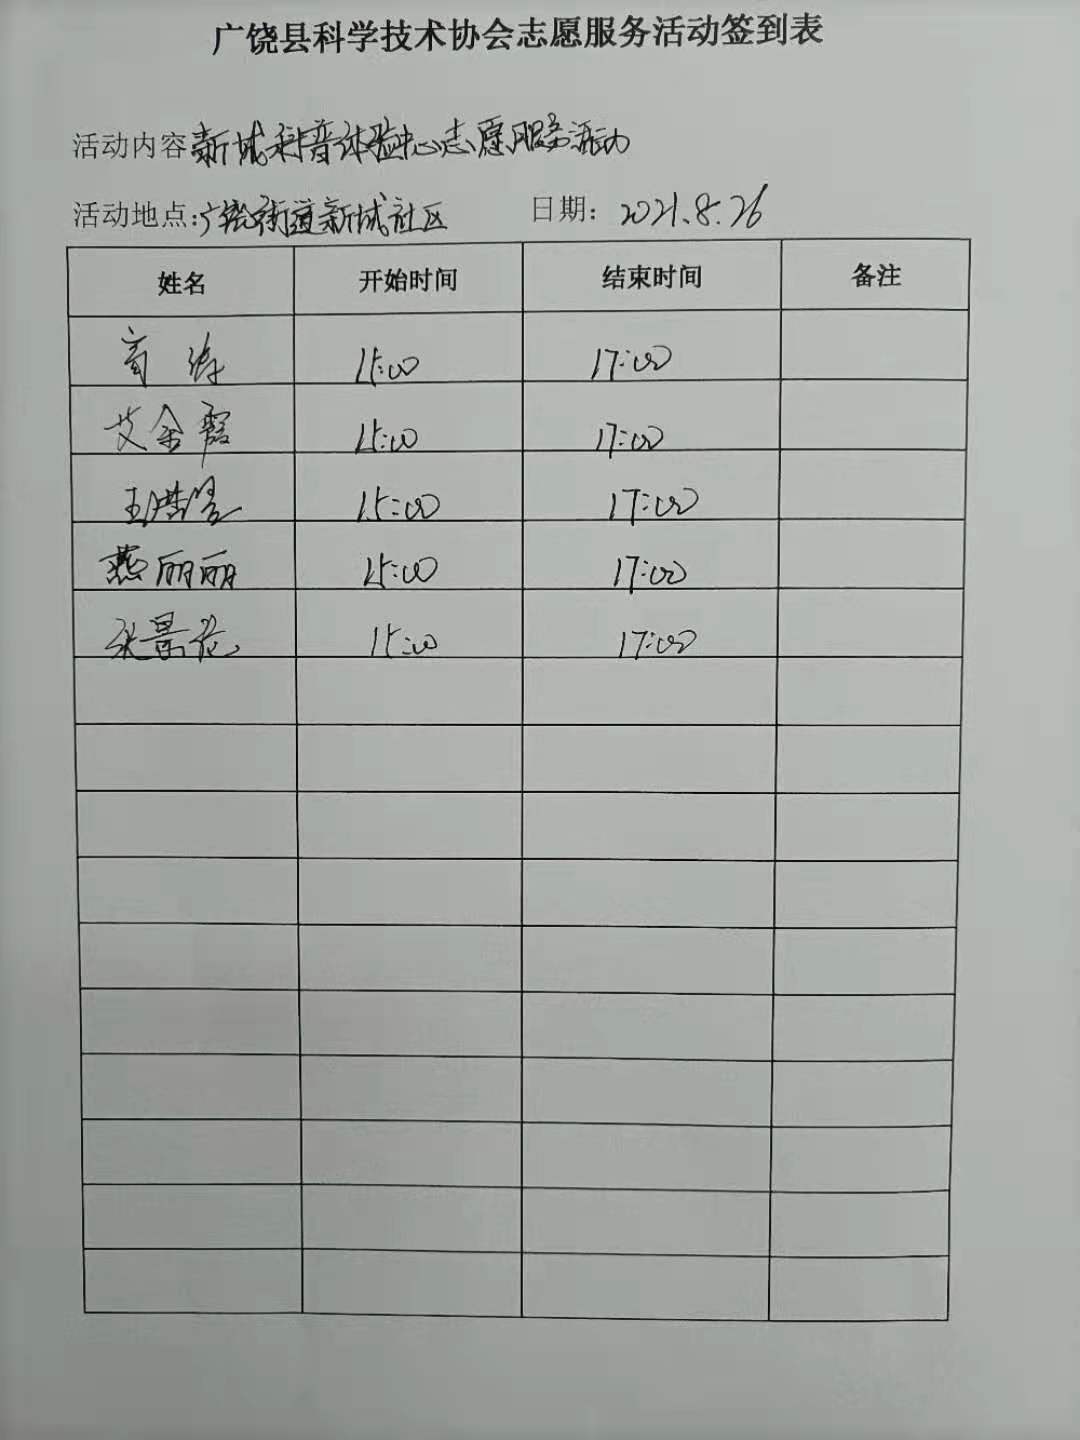 广饶县科学技术协会志愿服务活动签到表
活动内容 新城科普体验中心志愿服务活动
活动地点: 广饶街道新城社区 日期: 2021.8.26
姓名 开始时间 结束时间 备注
15:00 17:00
艾金霞 15:00 17:00
王洪 15:00 17:00
燕丽丽 15:00 17:00
张景花 15:00 17:00